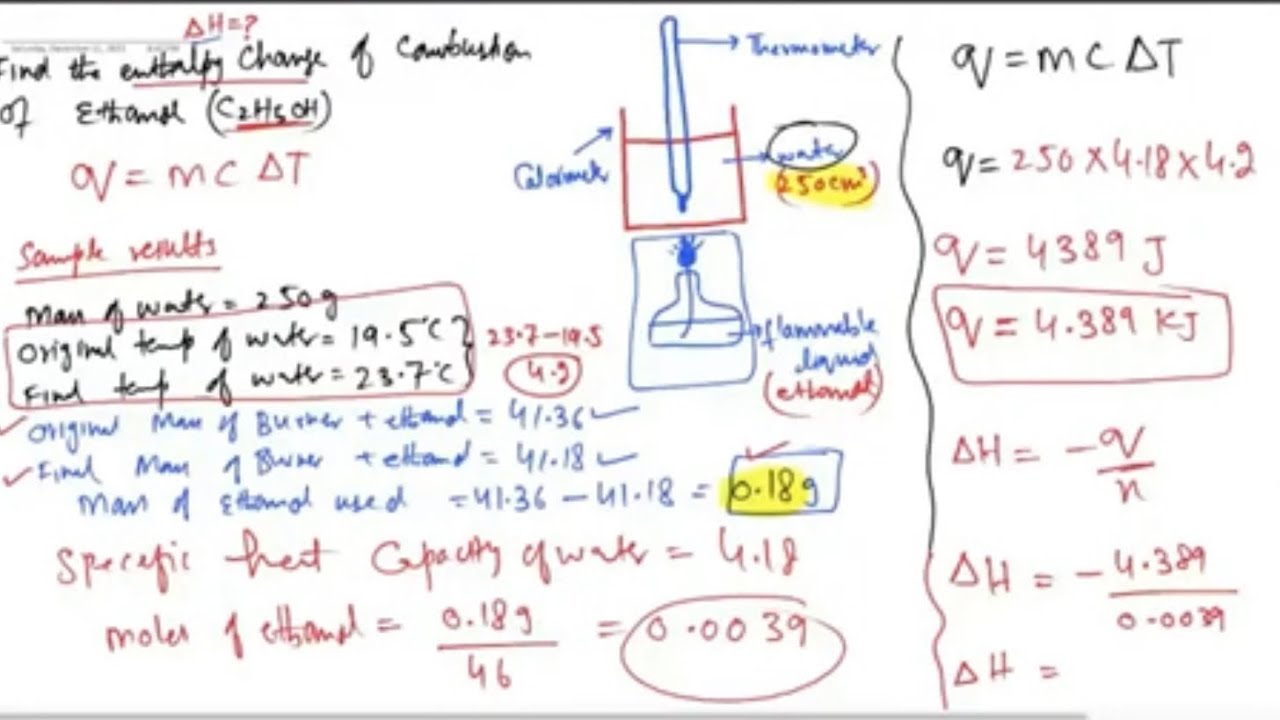 ΔH=?
Find the enthalpy Change of Combustion
of Ethanol (C2H5OH)
q = mcΔT
Sample results
Mass of water = 250g
Original temp of water = 19.5°C
Find temp of water = 23.7°C
23.7-19.5
4.2
Original Mass of Burner + ethanol = 41.36 ✓
✓ Final Mass of Burner + ethanol = 41.18 ✓
Mass of Ethanol used = 41.36 - 41.18 = 0.18g
Specefic heat Capacity of water = 4.18
moles of ethanol = 0.18g / 46 = 0.0039
Thermometer
Calorimeter
water
(250cm³)
flammable
liquid
(ethanol)
q = mcΔT
q = 250 × 4.18 × 4.2
q = 4389 J
q = 4.389 KJ
ΔH = -q/n
ΔH = -4.389/0.0039
ΔH =